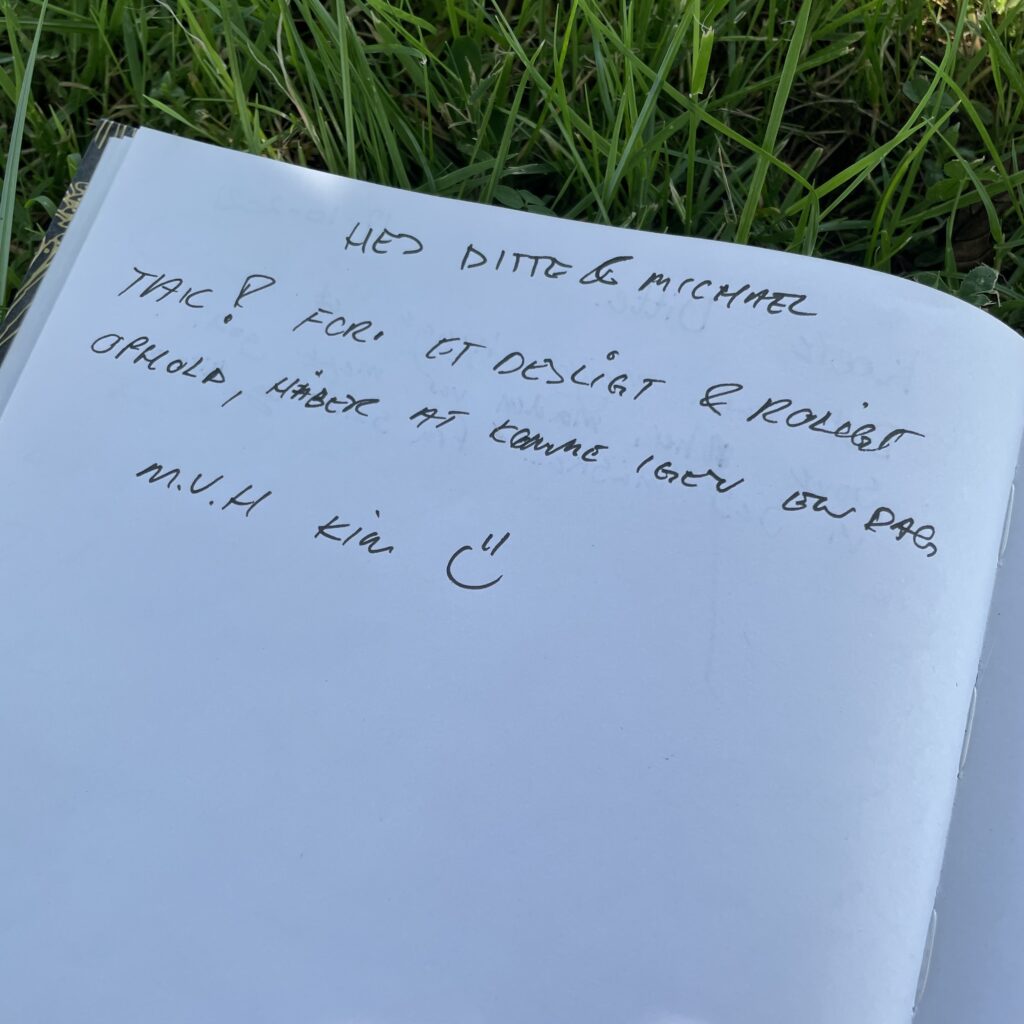 HEJ DITTE & MICHAEL
TAK! FOR. ET DEJLIGT & ROLIGT
OPHOLD, HÅBER AT KOMME IGEN EN DAG,
M.V.H Kim